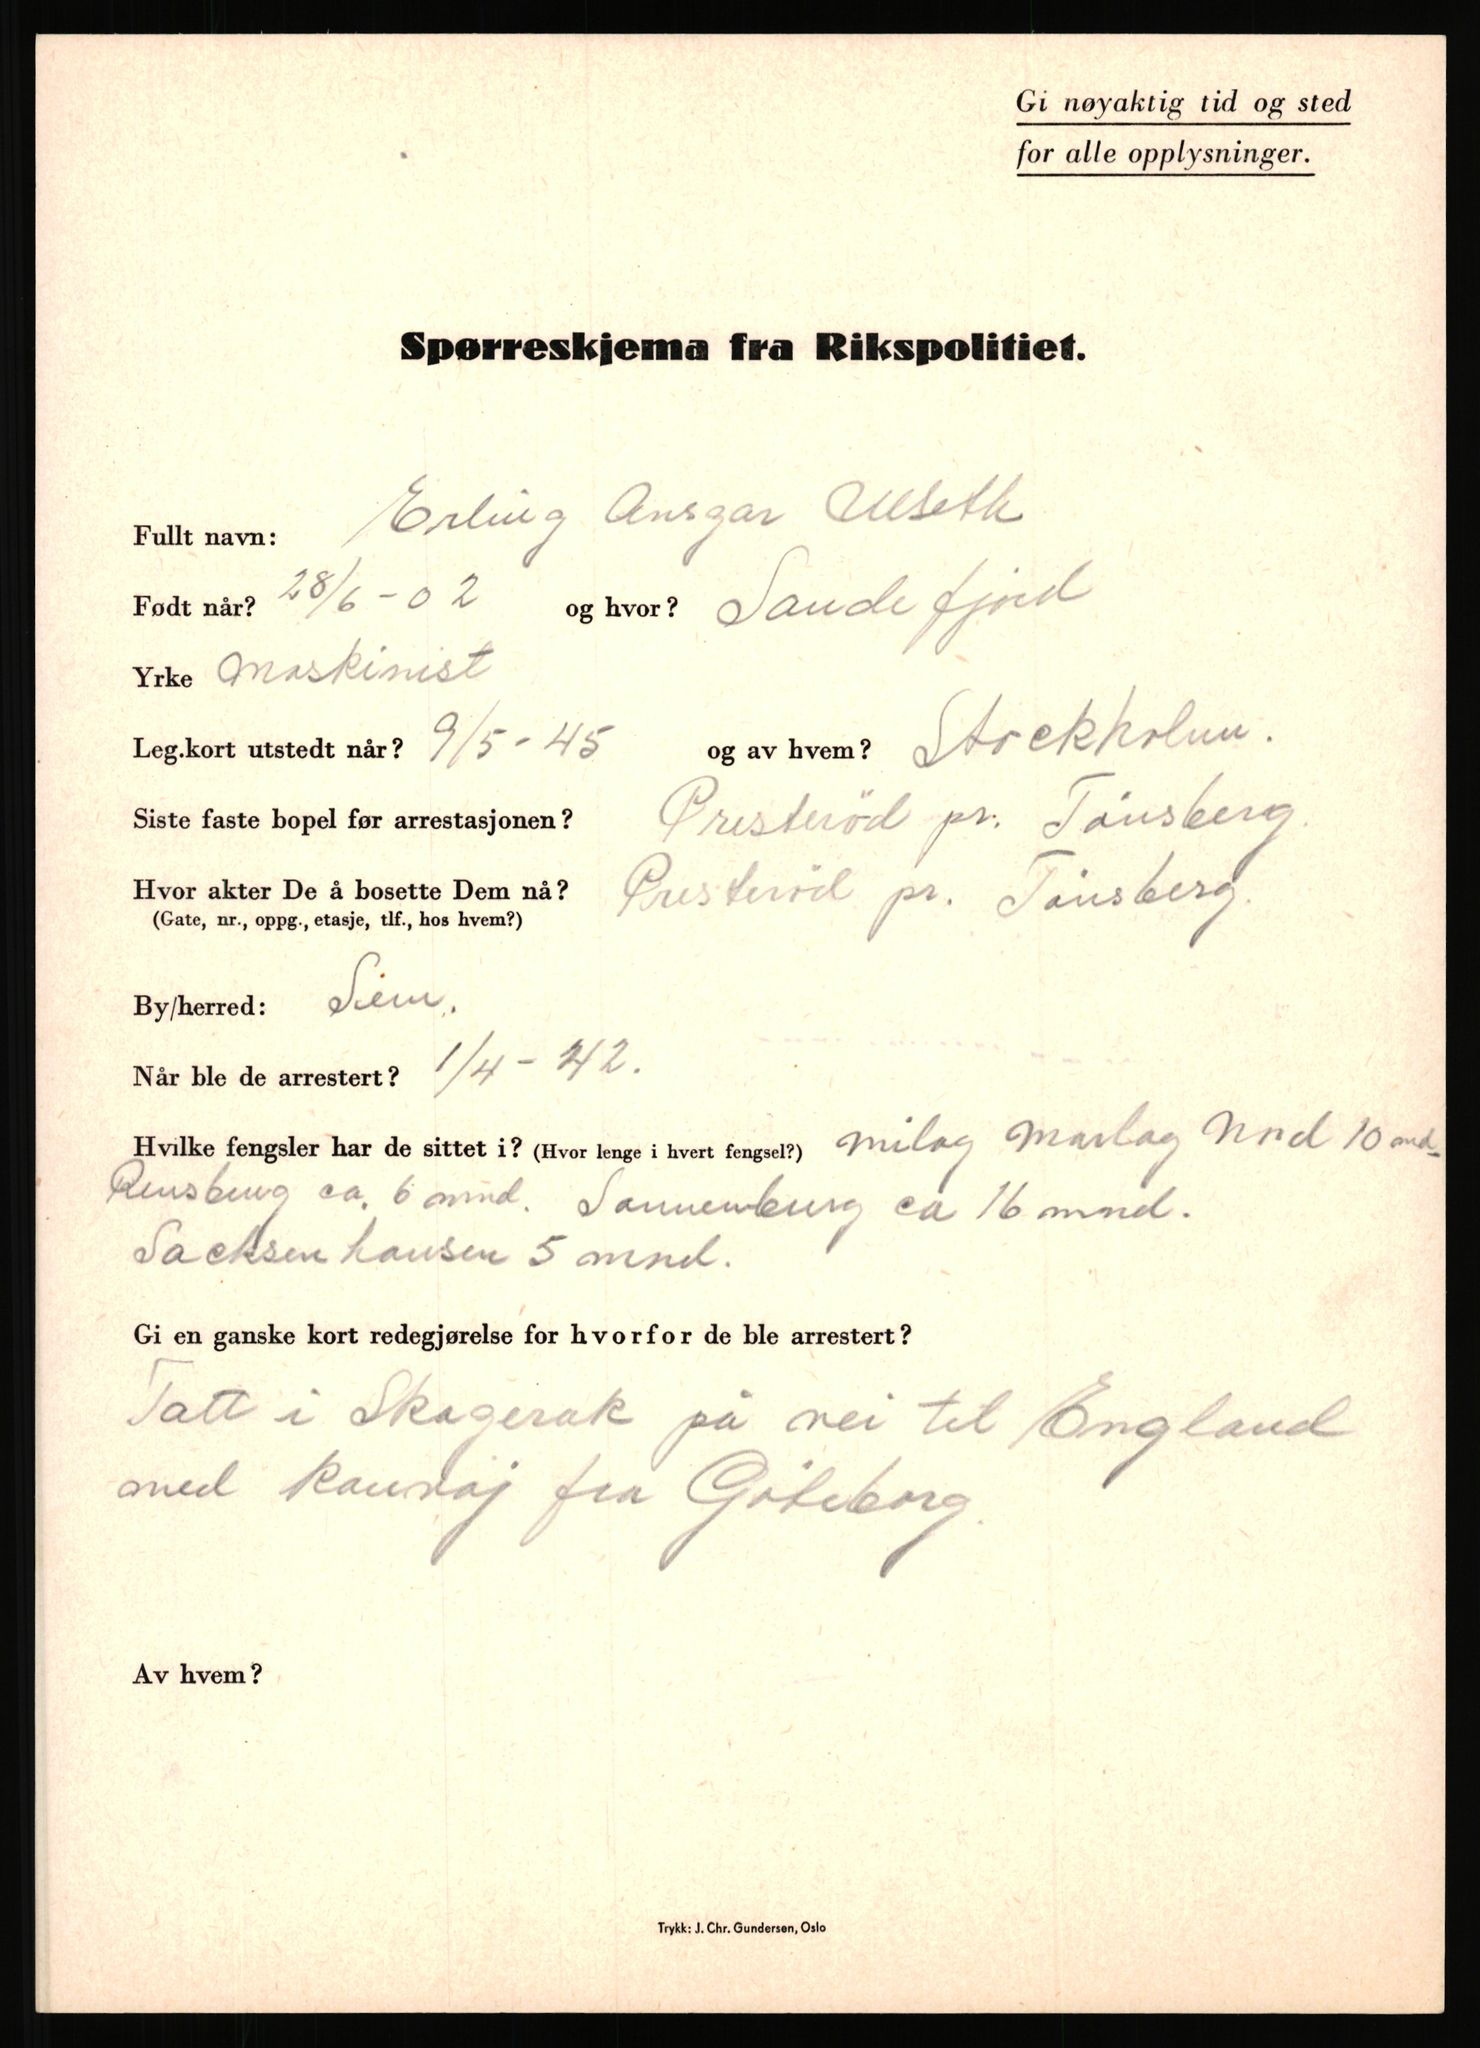 Gi nøyaktig tid og sted
for alle opplysninger.
Spørreskjema fra Rikspolitiet.
Fullt navn: Erling Ansgar Ulseth
Født når? 28/6-02 og hvor? Sandefjord
Yrke Maskinist
Leg.kort utstedt når? 9/5-45 og av hvem? Stockholm.
Siste faste bopel før arrestasjonen? Presteröd pr. Tönsberg.
Hvor akter De å bosette Dem nå? Presteröd pr. Tönsberg.
(Gate, nr., oppg., etasje, tlf., hos hvem?)
By/herred: Sem.
Når ble de arrestert? 1/4-42.
Hvilke fengsler har de sittet i? (Hvor lenge i hvert fengsel?) Milag Marlag Nord 10 md
Rensburg ca. 6 mnd. Sonnenburg ca 16 mnd.
Sacksenhausen 5 mnd.
Gi en ganske kort redegjørelse for hvorfor de ble arrestert?
Tatt i Skagerak på vei til England
med konvoj fra Göteborg.
Av hvem?
Trykk: J. Chr. Gundersen, Oslo